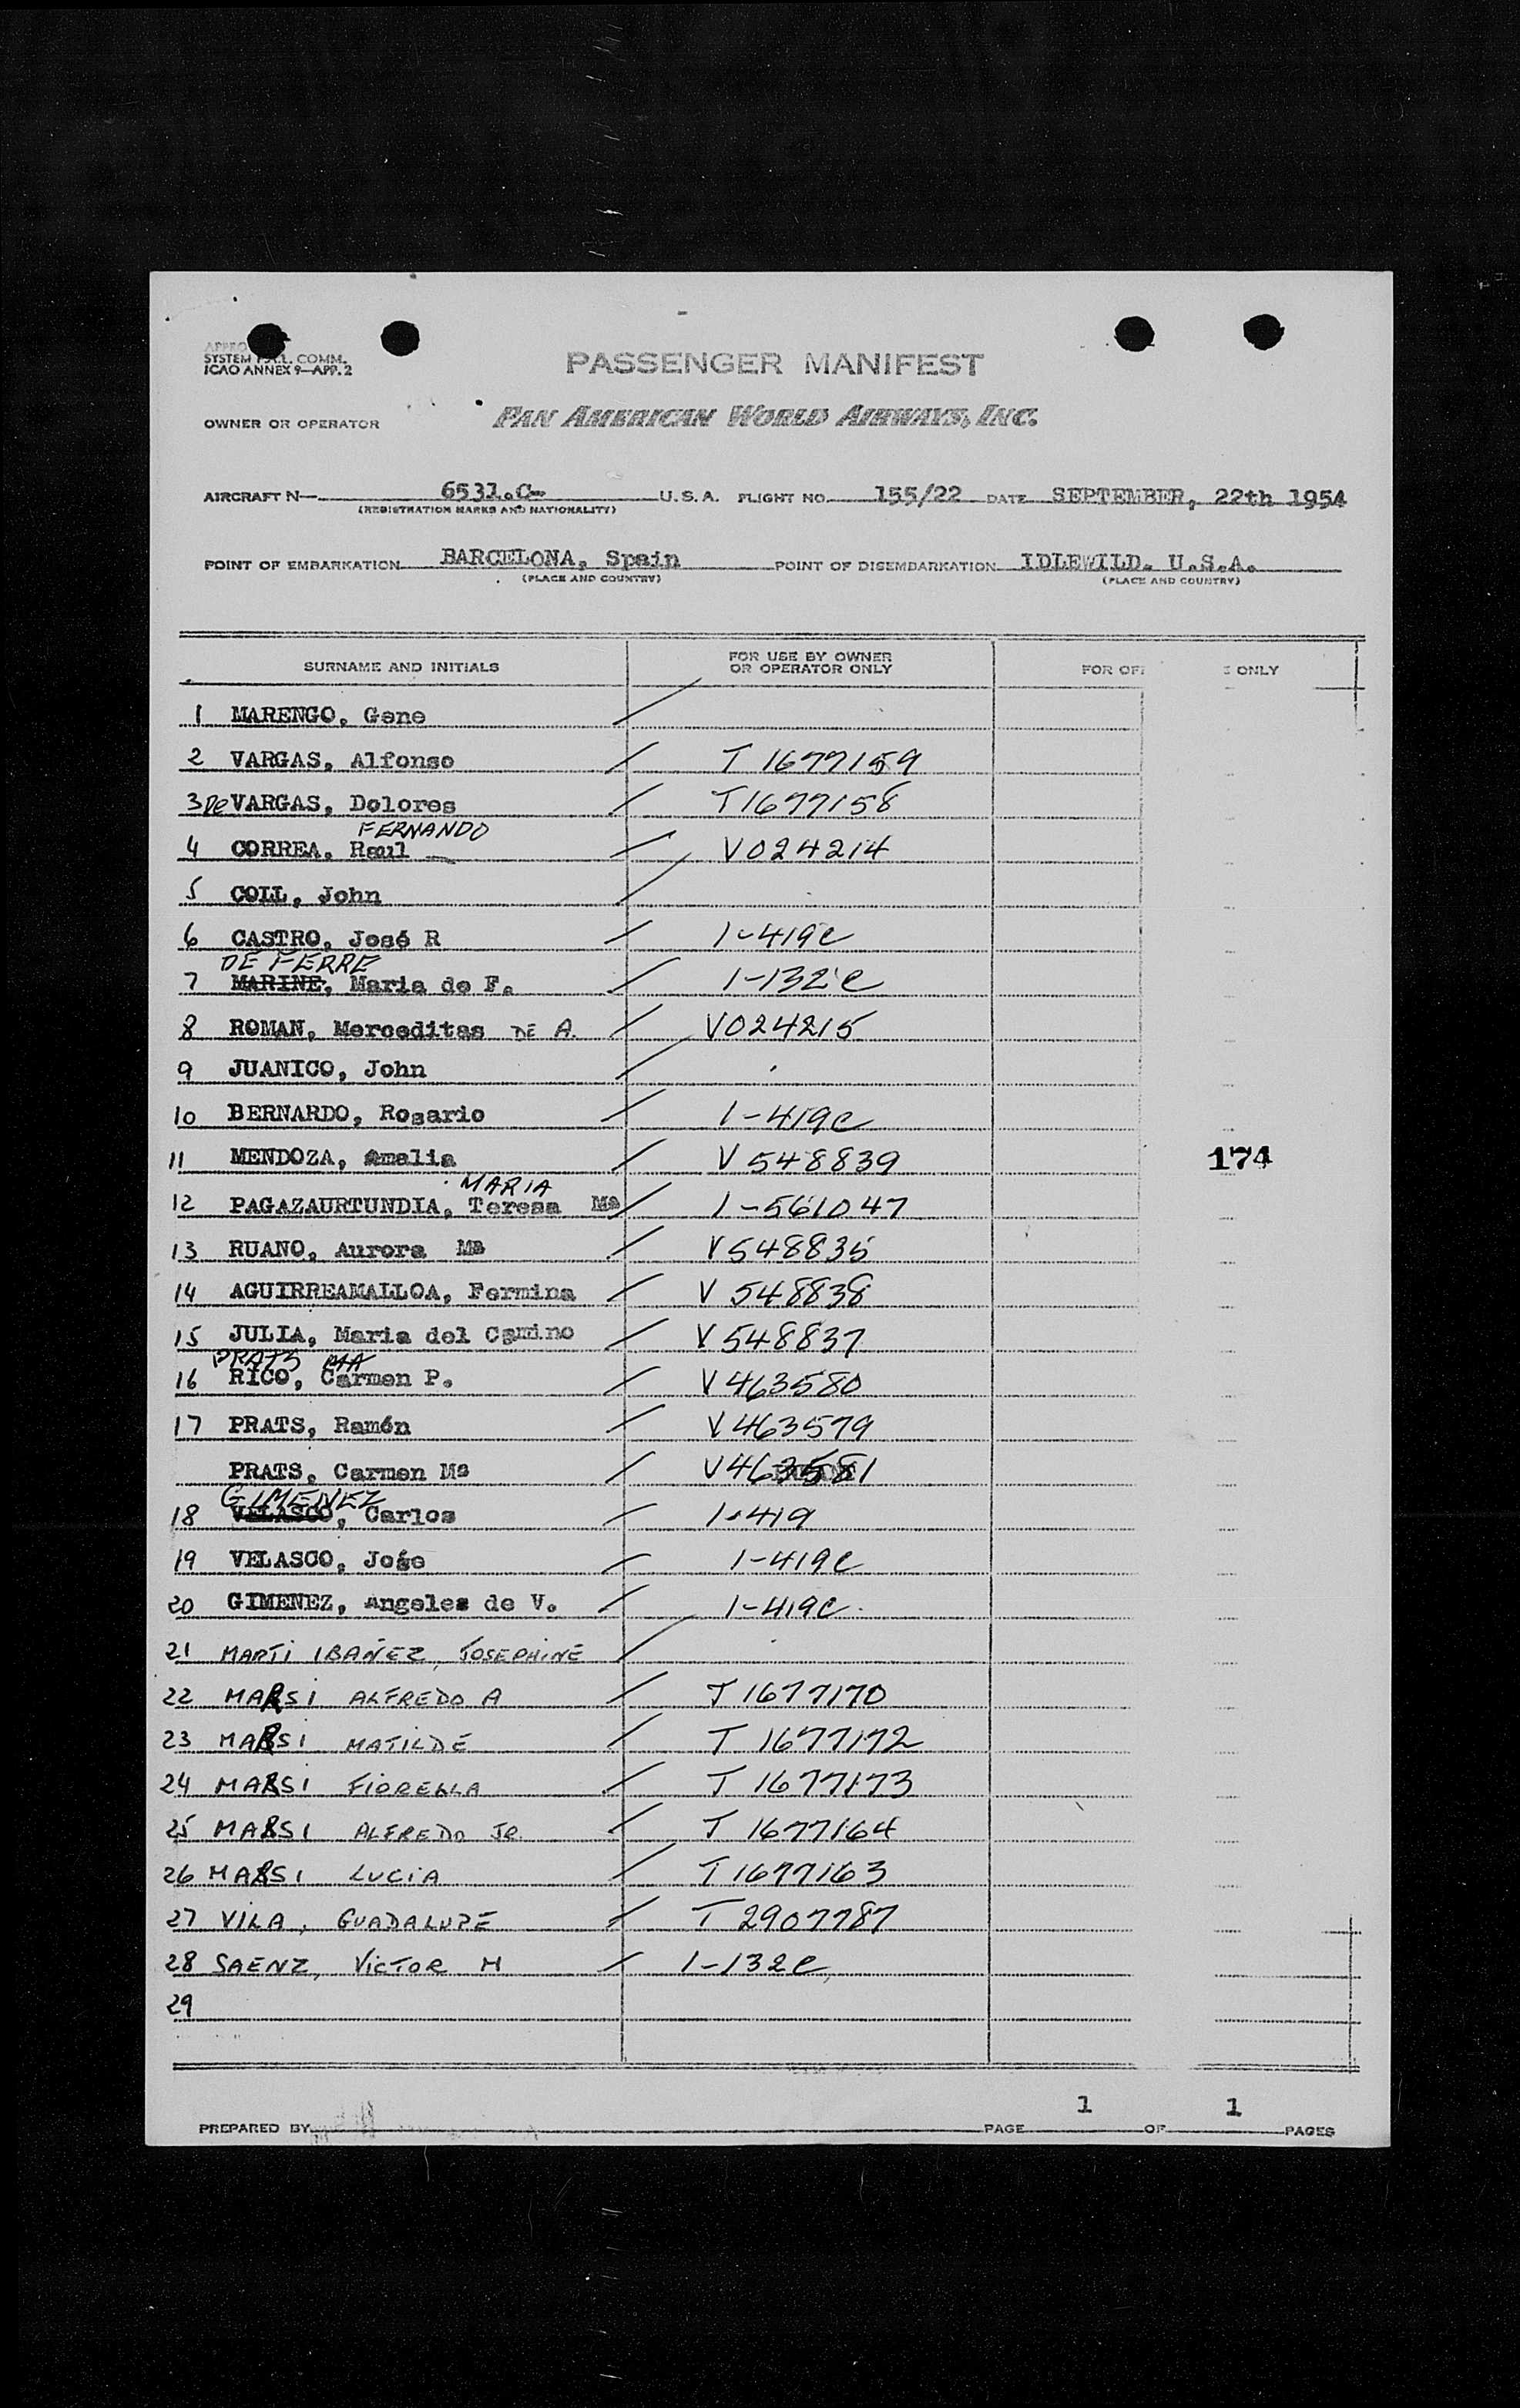 APPRO
SYSTEM F.A.L. COMM.
ICAO ANNEX 9—APP. 2
PASSENGER MANIFEST
OWNER OR OPERATOR PAN AMERICAN WORLD AIRWAYS, INC.
AIRCRAFT N— 6531.C- U.S.A. FLIGHT NO. 155/22 DATE SEPTEMBER, 22th 1954
(REGISTRATION MARKS AND NATIONALITY)
POINT OF EMBARKATION BARCELONA, Spain POINT OF DISEMBARKATION IDLEWILD. U.S.A.
(PLACE AND COUNTRY) (PLACE AND COUNTRY)
SURNAME AND INITIALS FOR USE BY OWNER OR OPERATOR ONLY FOR OF ONLY
1 MARENGO, Gene
2 VARGAS, Alfonso T 1677159
3 De VARGAS, Dolores T1677158
FERNANDO
4 CORREA, Raul V024214
5 COLL, John
6 CASTRO, José R 1-419C
DE FERRE
7 MARINE, Maria de F. 1-132C
8 ROMAN, Merceditas DE A. V024215
9 JUANICO, John
10 BERNARDO, Rosario 1-419C
11 MENDOZA, Amalia V 548839 174
MARIA
12 PAGAZAURTUNDIA, Teresa Mª 1-561047
13 RUANO, Aurora Mª V548835
14 AGUIRREAMALLOA, Fermina V 548838
15 JULIA, Maria del Camino V548837
PRATS MA
16 RICO, Carmen P. V463580
17 PRATS, Ramón V463579
PRATS, Carmen Mª V463581
GIMENEZ
18 VELASCO, Carlos 1-419
19 VELASCO, Jose 1-419C
20 GIMENEZ, Angeles de V. 1-419C
21 MARTI IBAÑEZ, JOSEPHINE
22 MARSI ALFREDO A T 1677170
23 MARSI MATILDE T 1677172
24 MARSI FIORELLA T 1677173
25 MARSI ALFREDO JR. T 1677164
26 MARSI LUCIA T1677163
27 VILA, GUADALUPE T 2907787
28 SAENZ, VICTOR M 1-132C
29
PREPARED BY PAGE 1 OF 1 PAGES